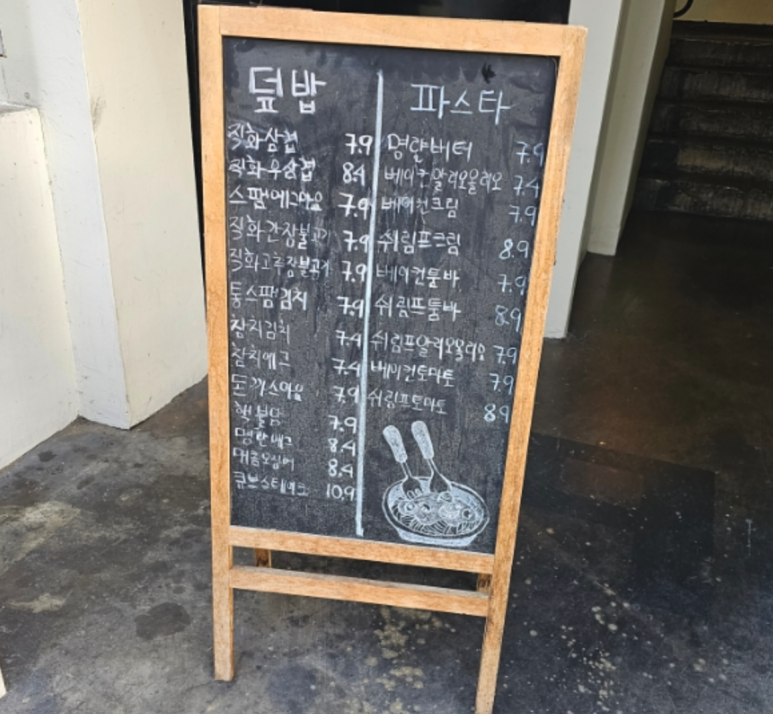 덮밥
직화삼겹 7.9
직화우삼겹 8.4
스팸에그마요 7.9
직화간장불고기 7.9
직화고추장불고기 7.9
통스팸김치 7.9
참치김치 7.4
참치에그 7.4
돈까스마요 7.9
핵불닭 7.9
명란에그 8.4
매콤오징어 8.4
큐브스테이크 10.9
파스타
명란버터 7.9
베이컨알리오올리오 7.4
베이컨크림 7.9
쉬림프크림 8.9
베이컨툼바 7.9
쉬림프툼바 8.9
쉬림프알리오올리오 7.9
베이컨토마토 7.9
쉬림프토마토 8.9